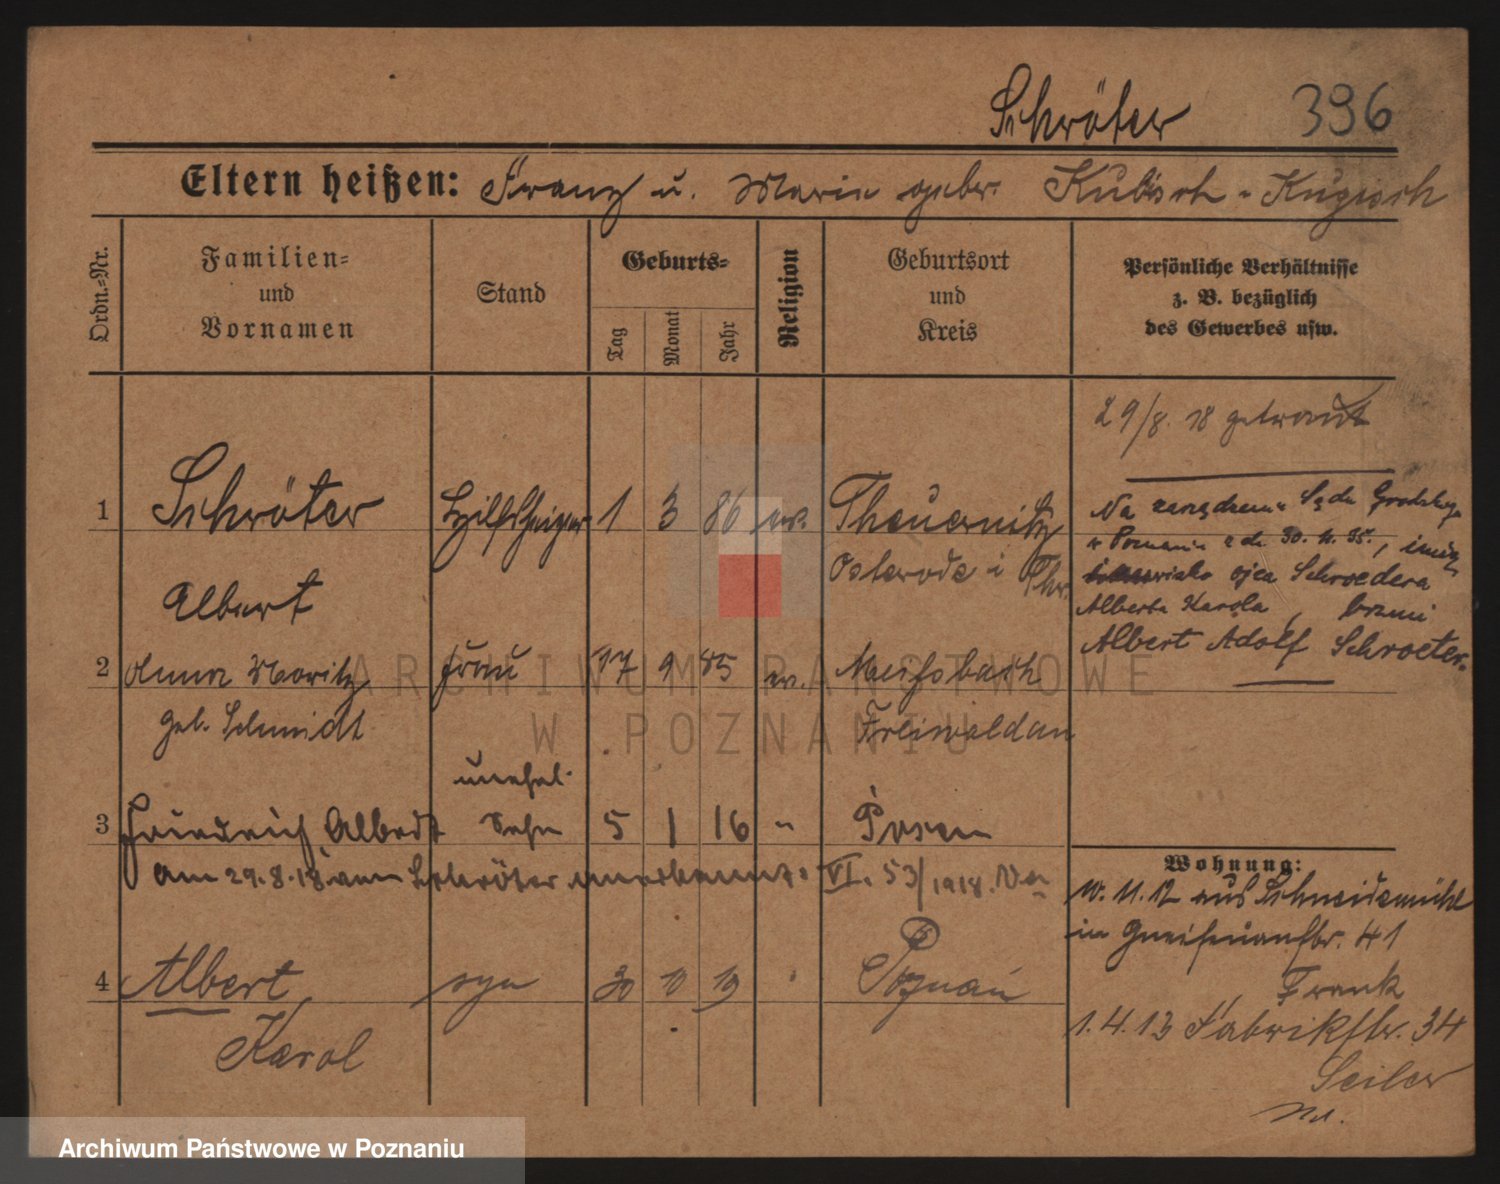 Schröter 396
Eltern heißen: Franz u. Marie gebr. Kubisch - Kugisch
Ordn.-Nr.
Familien=
und
Vornamen
Stand
Geburts=
Tag
Monat
Jahr
Religion
Geburtsort
und
Kreis
Persönliche Verhältnisse
z. B. bezüglich
des Gewerbes usw.
29/8. 18 getraut
1 Schröter Hilfsheizer 1 3 86 ev. Theuernitz
Osterode i Thr.
Albert
Na zarządzenie Sądu Grodzkiego
w Poznaniu z dn. 30. 11. 35., imię
i nazwisko ojca Schroedera
Alberta Karola, brzmi
Albert Adolf Schroeter.
2 Anna Moritz Frau 17 9 85 ev. Meifsbach
geb. Schmidt Freiwaldau
unehel.
3 Friedrich Albert Sohn 5 1 16 " Posen
am 29.8.18 vom Schröter anerkannt. VI. 53/1918.
4 Albert, syn 30 10 19 Poznań
Karol
Wohnung:
10. 11. 12 aus Schneidemühl
in Gneisenaustr. 41
Frank
1.4.13 Fabrikstr. 34
Seiler
ARCHIWUM PAŃSTWOWE
W POZNANIU
Archiwum Państwowe w Poznaniu